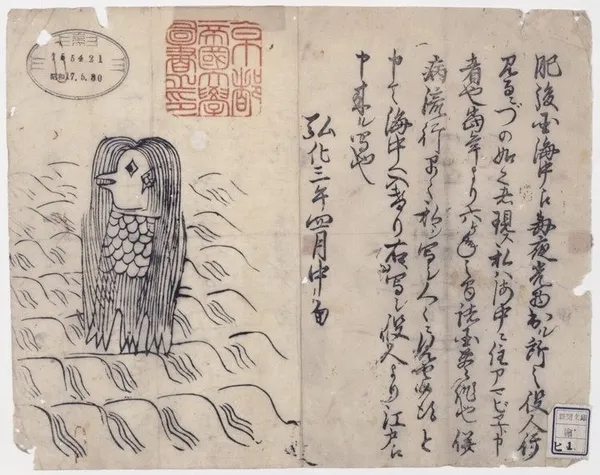 肥後国海中え毎夜光物出ル所之役人行
見るニづの如之者現ス私ハ海中ニ住アマビヱト申
者也当年より六ヶ年之間諸国豊作也併
病流行早々私シ写シ人々ニ見せ候得と
申て海中へ入けり右写シ役人より江戸え
申来ル写也
弘化三年四月中旬
京都
帝國大學
圖書之印
165421
昭和17.5.30